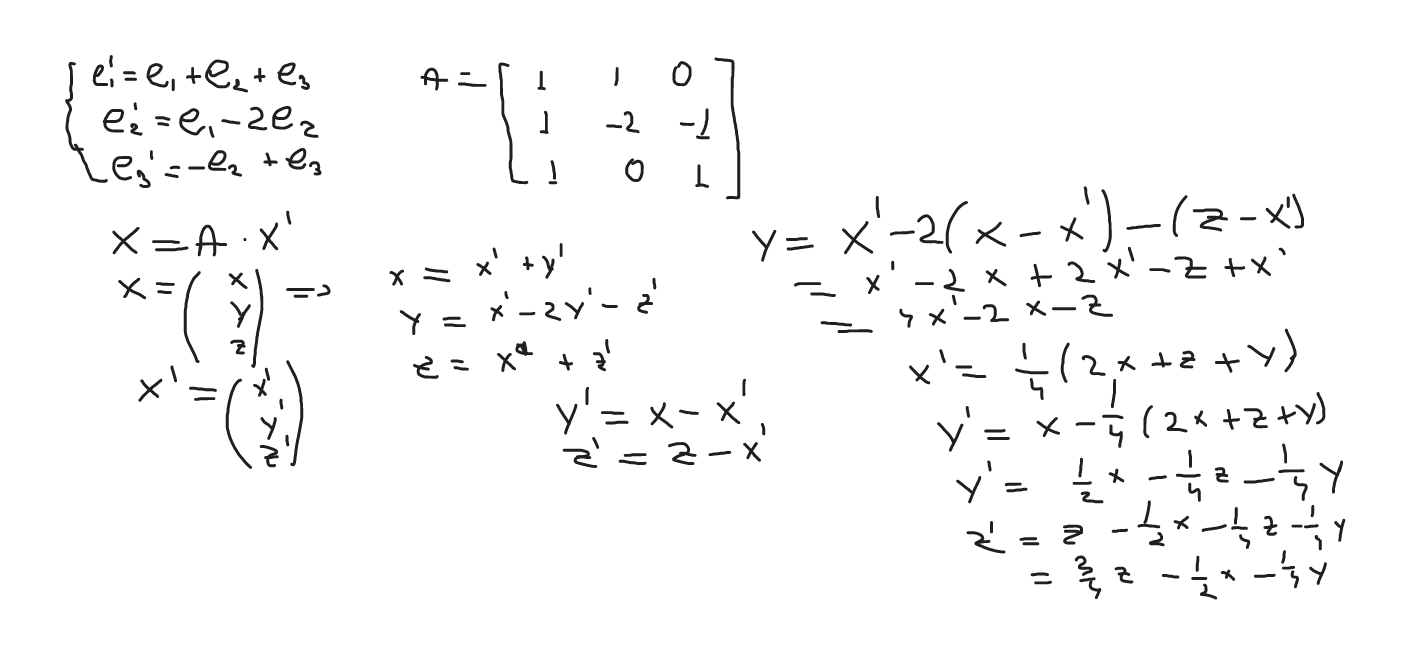 e₁' = e₁ + e₂ + e₃
e₂' = e₁ - 2e₂
e₃' = -e₂ + e₃
A = [ 1 1 0
1 -2 -1
1 0 1 ]
X = A · X'
X = ( x
y
z ) =>
X' = ( x'
y'
z' )
x = x' + y'
y = x' - 2y' - z'
z = x' + z'
y' = x - x'
z' = z - x'
y = x' - 2(x - x') - (z - x')
= x' - 2x + 2x' - z + x'
= 4x' - 2x - z
x' = 1/4 (2x + z + y)
y' = x - 1/4 (2x + z + y)
y' = 1/2 x - 1/4 z - 1/4 y
z' = z - 1/2 x - 1/4 z - 1/4 y
= 3/4 z - 1/2 x - 1/4 y